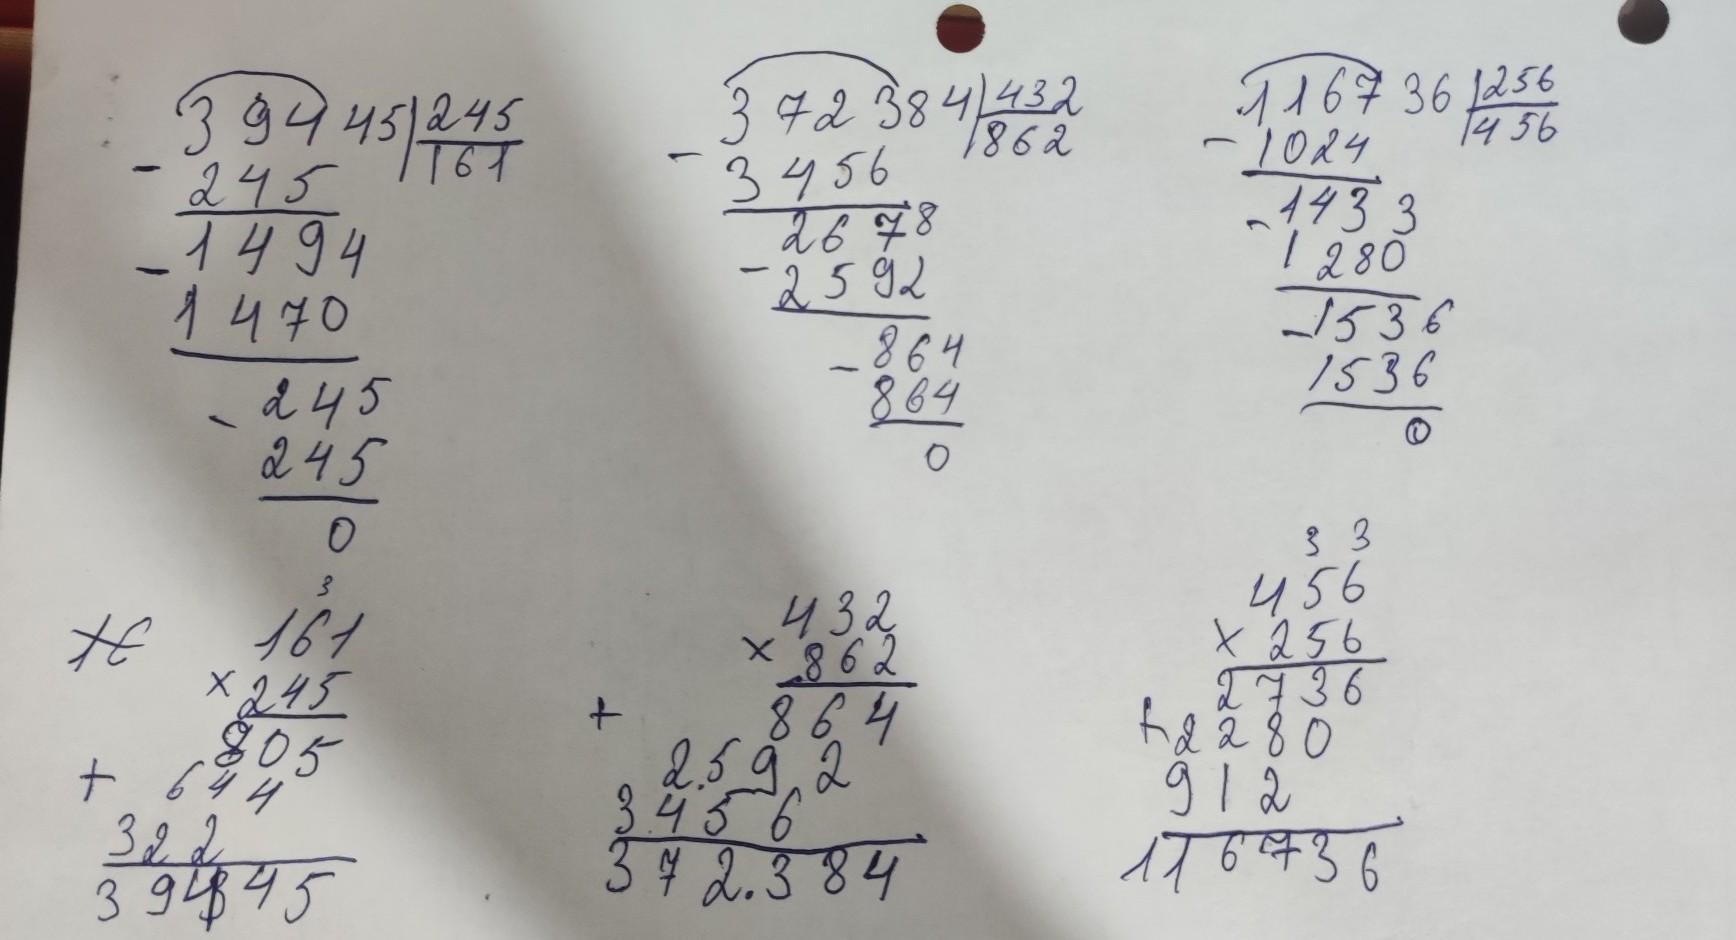 39445 245
- 161
245
- 1494
1470
- 245
245
0
372384 432
- 862
3456
2678
- 2592
- 864
864
0
116736 256
- 1024 456
- 1433
1280
- 1536
1536
0
3
161
× 245
805
+ 644
322
39445
432
× 862
+ 864
2592
3456
372.384
3 3
456
× 256
2736
+ 2280
912
116736